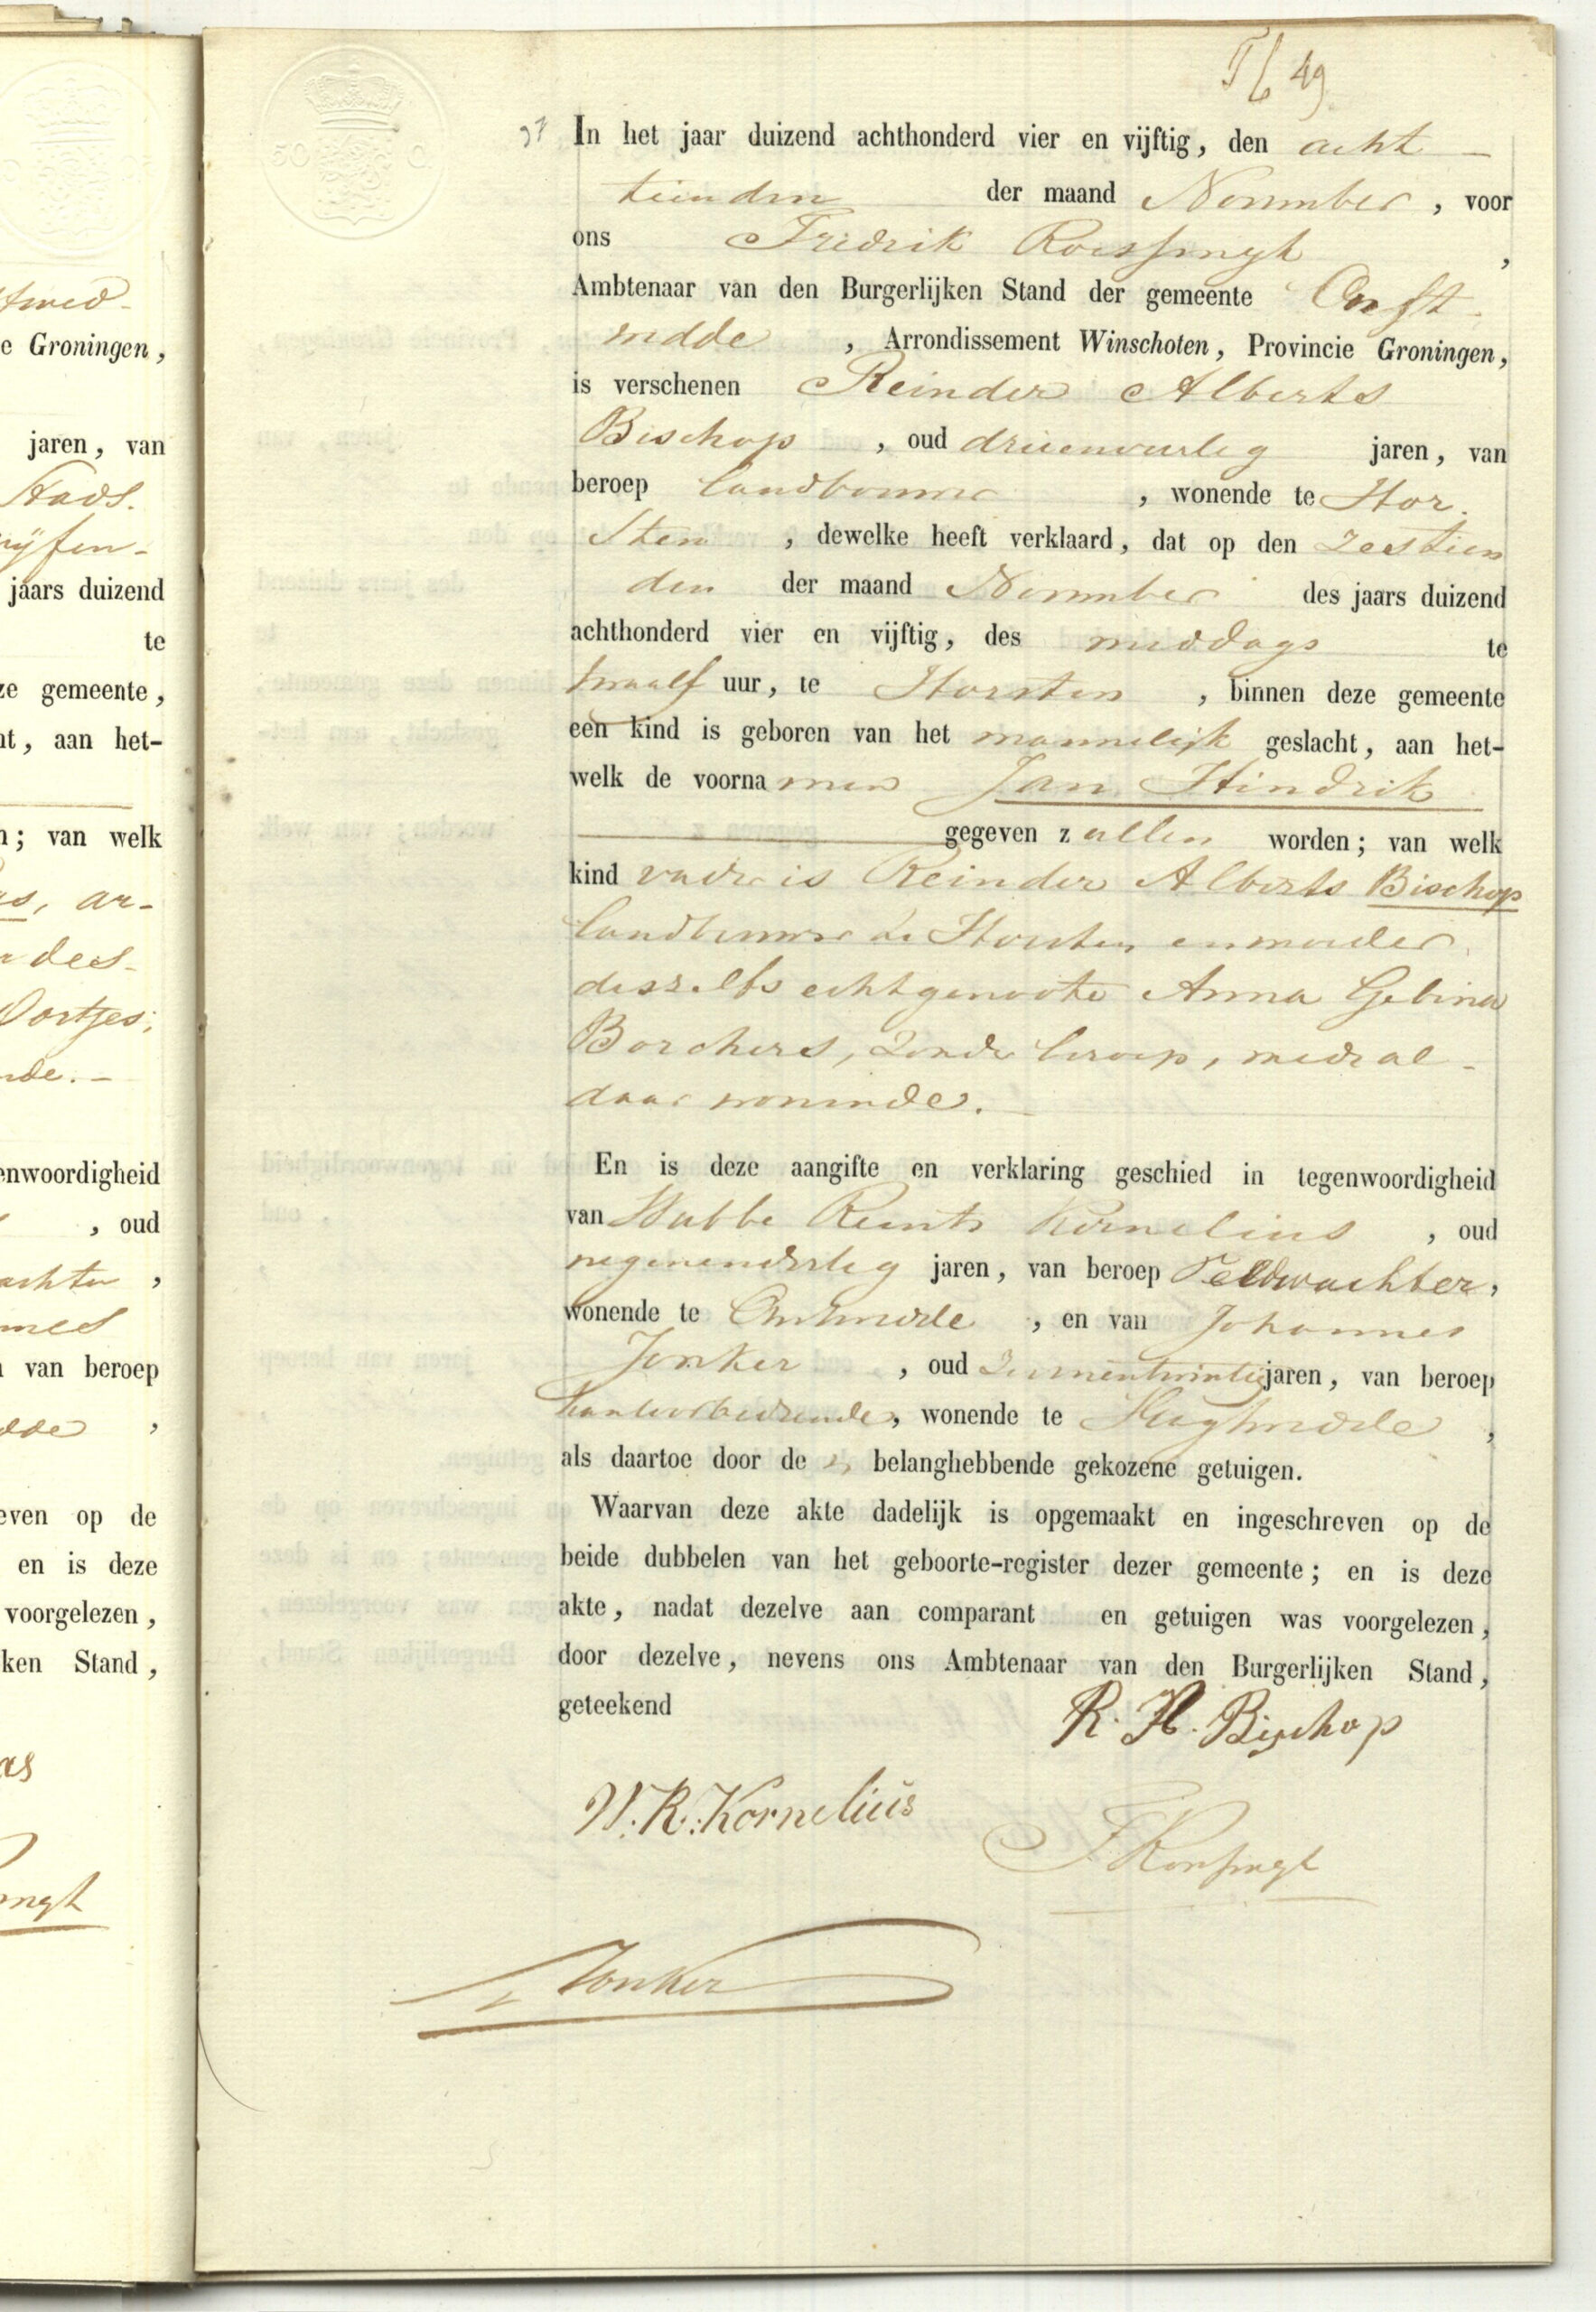 fwed-
e Groningen,
jaren, van
Stads.
vijfen-
jaars duizend
te
ze gemeente,
ht, aan het-
n; van welk
as, ar-
des-
Oortjes;
nde.-
enwoordigheid
, oud
achter ,
nnes
n van beroep
dde ,
even op de
en is deze
voorgelezen,
ken Stand,
as
ingh
49
97 In het jaar duizend achthonderd vier en vijftig, den acht
tienden der maand November, voor
ons Fredrik Roessingh,
Ambtenaar van den Burgerlijken Stand der gemeente Onst-
wedde, Arrondissement Winschoten, Provincie Groningen,
is verschenen Reinder Alberts
Bischop, oud drieenveertig jaren, van
beroep landbouwer, wonende te Hor-
sten, dewelke heeft verklaard, dat op den zestien
den der maand November des jaars duizend
achthonderd vier en vijftig, des middags te
twaalf uur, te Horsten, binnen deze gemeente
een kind is geboren van het mannelijk geslacht, aan het-
welk de voornamen Jan Hindrik
gegeven zullen worden; van welk
kind vader is Reinder Alberts Bischop
landbouwer te Horsten en moeder
deszelfs echtgenoote Anna Gebina
Borchers, zonder beroep, mede al-
daar wonende.
En is deze aangifte en verklaring geschied in tegenwoordigheid
van Wubbe Reints Kornelius, oud
negenendertig jaren, van beroep Veldwachter,
wonende te Onstwedde, en van Johannes
Jonker, oud zevenentwintig jaren, van beroep
kantoorbediende, wonende te Vlagtwedde,
als daartoe door de belanghebbende gekozene getuigen.
Waarvan deze akte dadelijk is opgemaakt en ingeschreven op de
beide dubbelen van het geboorte-register dezer gemeente; en is deze
akte, nadat dezelve aan comparant en getuigen was voorgelezen,
door dezelve, nevens ons Ambtenaar van den Burgerlijken Stand,
geteekend
R. A. Bischop
W. R. Kornelius
F Roessingh
J Jonker